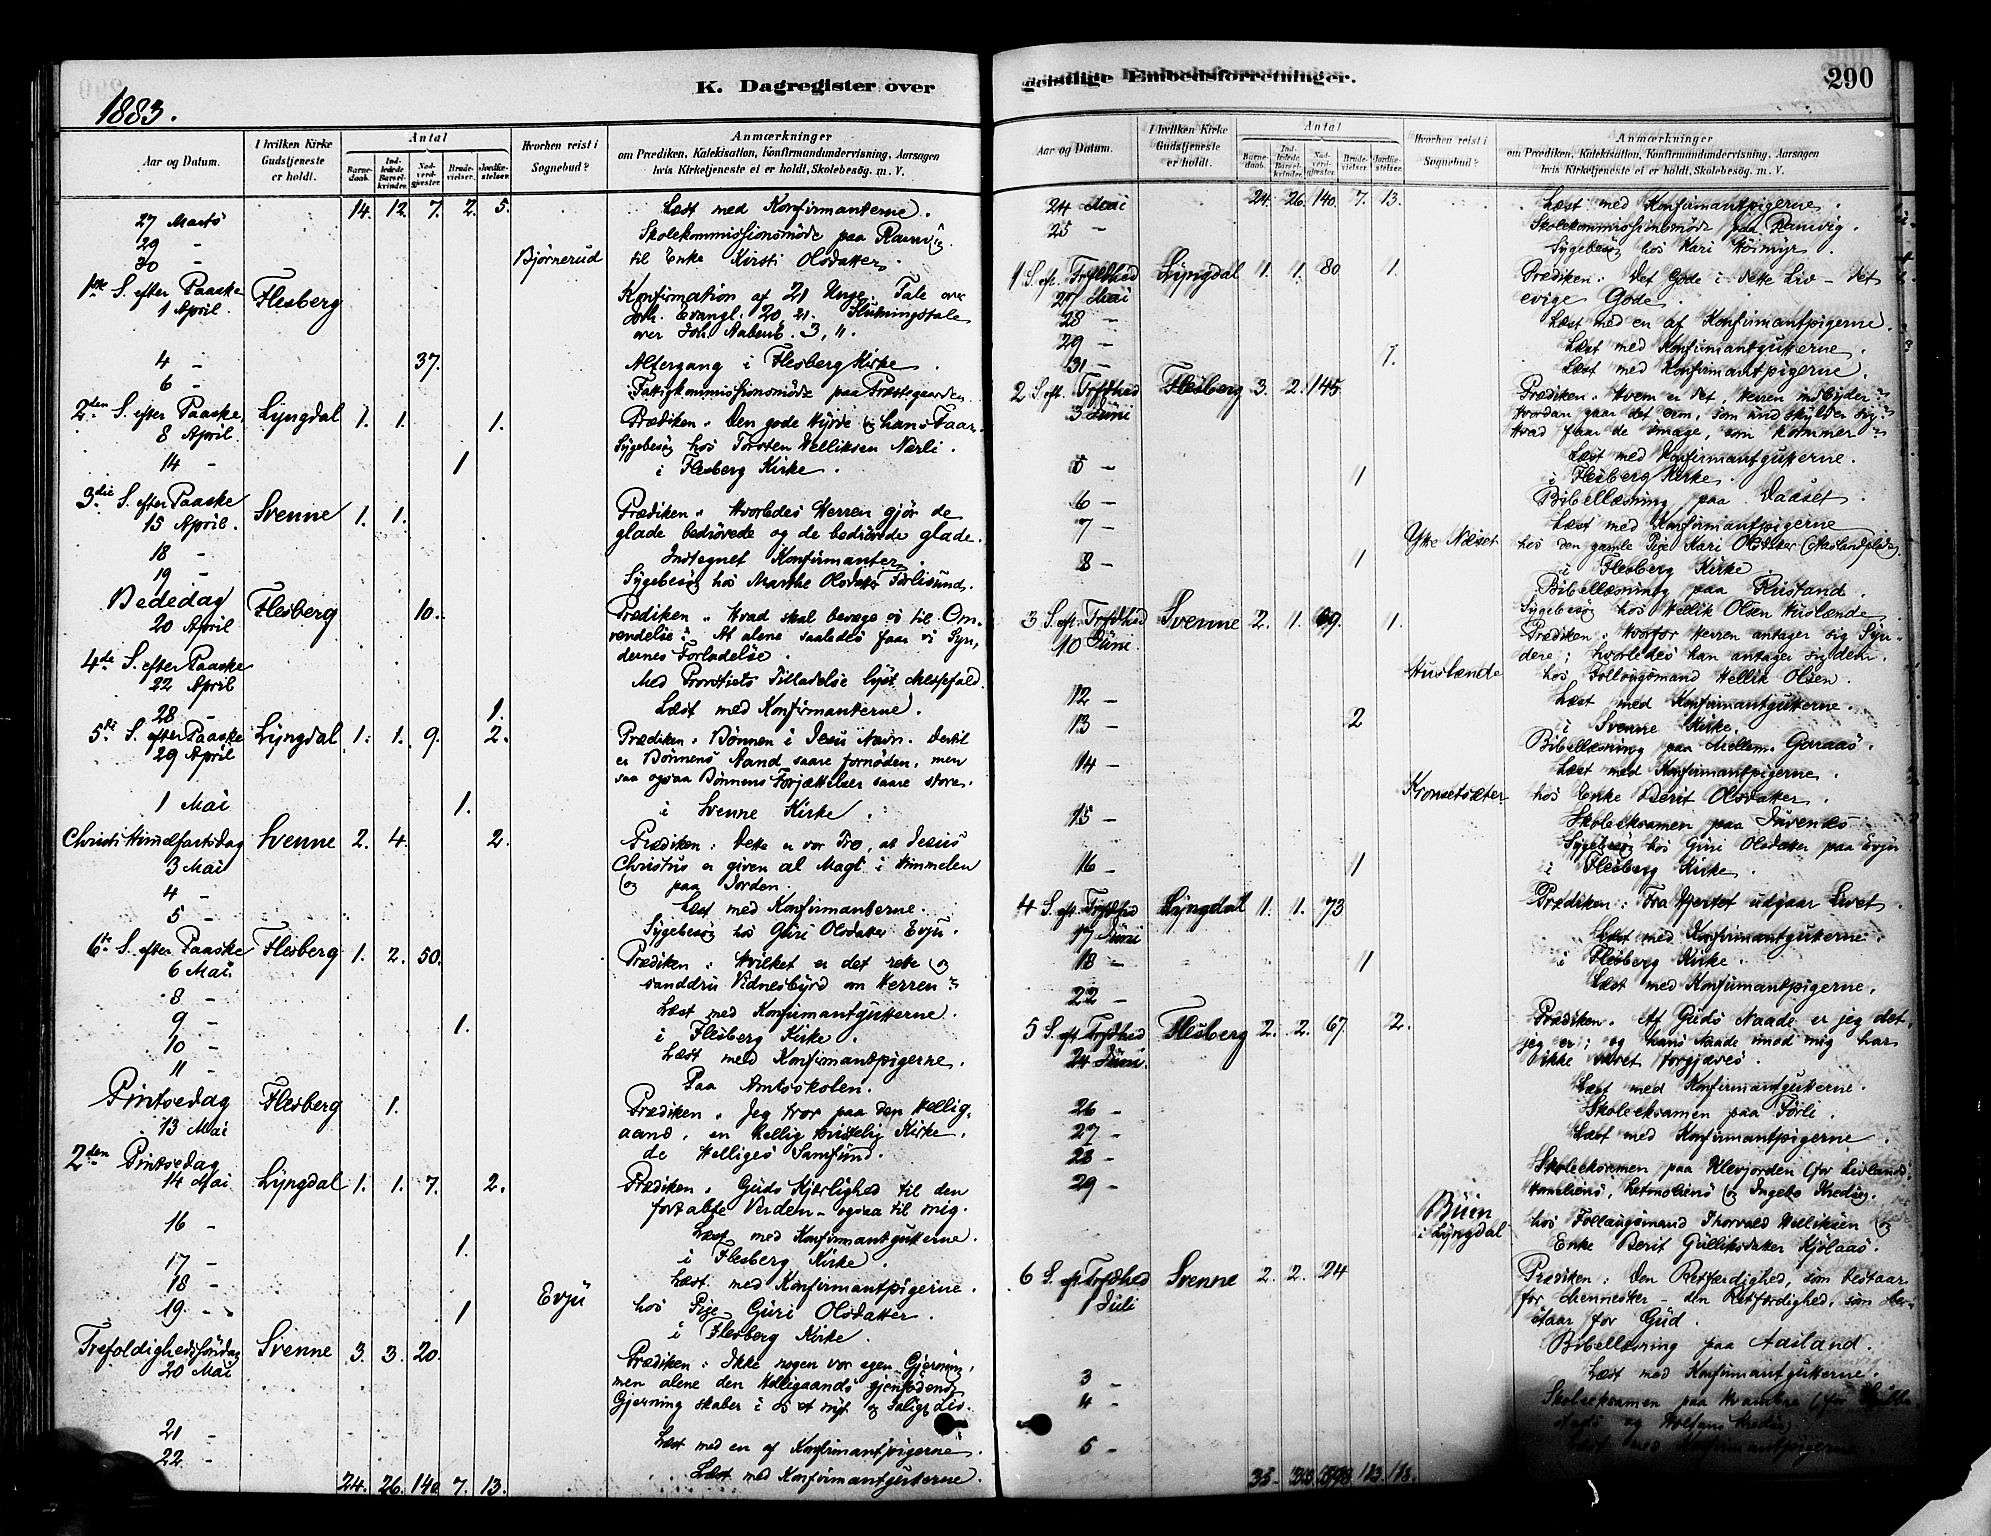 K. Dagregister over
1883.
Aar og Datum. I hvilken Kirke Gudstjeneste er holdt. Antal Barnedaab. Indledede Barselkvinder. Nadverdgjæster. Brudevielser. Jordfæstelser. Hvorhen reist i Sognebud? Anmærkninger om Prædiken, Katekisation, Konfirmandundervisning, Aarsagen hvis Kirketjeneste ei er holdt, Skolebesøg. m. V.
27 Marts 14. 12. 7. 2. 5. Læst med Konfirmanterne.
29 - Skolekommissionsmöde paa
30 - Bjørnerud til Enke Kirsti Olsdatter.
1ste S. efter Paaske Flesberg Konfirmation af 21 Unge. Tale over
1 April. Joh. Evangl. 20, 21. Slutningstale
over Joh. Aabenb. 3, 11.
4 - 37. Altergang i Flesberg Kirke.
6 - Fattigkommissionsmöde paa Præstegaarden
2den S. efter Paaske, Lyngdal 1. 1. 1. Prædiken: Den gode Hyrde og hans Faar.
8 April. Sygebesög hos Torsten Helliksen Nærli.
14 - 1 i Flesberg Kirke.
3die S. efter Paaske Svenne 1. 1. Prædiken: Hvorledes Herren gjør de
15 April. glade bedrövede og de bedrövede glade.
18 - Indtegnet Konfirmanter.
19 - Sygebesög hos Marthe Olsdatter
Bededag Flesberg 10. Prædiken: Hvad skal bevæge os til Om-
20 April vendelse? At alene saaledes faar vi Syn-
dernes Forladelse.
4de S. efter Paaske
22 April Med Provstiets Tilladelse lyst Messefald
28 - 1. Læst med Konfirmanterne.
5te S. efter Paaske Lyngdal 1. 1. 9. 2. Prædiken: Bønnen i Jesu Navn. Dertil
29 April er Bønnens Aand saare fornöden, men
saa ogsaa Bønnens Forjættelser saare store.
1 Mai 1. i Svenne Kirke.
Christi Himmelfartsdag Svenne 2. 4. 2. Prædiken: Dette er vor Tro, at Jesus
3 Mai Christus er given al Magt i Himmelen
og paa Jorden.
4 - Læst med Konfirmanterne.
5 - Sygebesög hos Guri Olsdatter Evju.
6te S. efter Paaske Flesberg 1. 2. 50. Prædiken: Hvilket er det rette og
6 Mai. sanddru Vidnesbyrd om Herren?
8 - Læst med Konfirmantgutterne.
9 - 1. i Flesberg Kirke.
10 - Læst med Konfirmantpigerne.
11 - Paa Amtsskolen.
Pintsedag Flesberg 1. Prædiken: Jeg tror paa den Hellig-
13 Mai aand, en hellig kristelig Kirke,
de Helliges Samfund.
2den Pintsedag
14 Mai Lyngdal 1. 1. 7. 2. Prædiken: Guds Kjærlighed til den
fortabte Verden - ogsaa til mig.
16 - Læst med Konfirmantgutterne.
17 - 1. i Flesberg Kirke.
18 - Læst med Konfirmantpigerne.
19 - Evju 1 hos Pige Guri Olsdatter
i Flesberg Kirke.
Trefoldighedssöndag Svenne 3. 3. 20. Prædiken: Ikke nogen vor egen Gjerning,
20 Mai men alene den Helligaands gjenfødende
Gjerning skaber i os et nyt og saligt Liv.
21 - Læst med en af Konfirmantpigerne.
22 - Læst med Konfirmantgutterne.
24. 26. 140. 7. 13.
geistlige Embedsforretninger. 290
Aar og Datum. I hvilken Kirke Gudstjeneste er holdt. Antal Barnedaab. Indledede Barselkvinder. Nadverdgjæster. Brudevielser. Jordfæstelser. Hvorhen reist i Sognebud? Anmærkninger om Prædiken, Katekisation, Konfirmandundervisning, Aarsagen hvis Kirketjeneste ei er holdt, Skolebesøg. m. V.
24 Mai 24. 26. 140. 7. 13. Læst med Konfirmantpigerne.
25 - Skolekommissionsmöde paa Ramvig.
Sygebesög hos Kari
1 S. eft. Trefdhed Lyngdal 1. 1. 80. 1. Prædiken: Det Gode i dette Liv - det
27 Mai evige Gode.
28 - Læst med en af Konfirmantpigerne.
29 - Læst med Konfirmantgutterne.
31 - 1. Læst med Konfirmantpigerne.
2 S. eft. Trefdhed Flesberg 3. 2. 145. Prædiken: Hvem er det, Herren indbyder?
3 Juni Hvordan gaar det dem, som undskylder sig?
Hvad faar de smage, som kommer?
5 - Læst med Konfirmantgutterne.
1 i Flesberg Kirke.
6 - Bibellæsning paa Daaset.
7 - Læst med Konfirmantpigerne
Ytre Næset hos den gamle Pige Kari Olsdatter
8 - 1 i Flesberg Kirke.
Bibellæsning paa Rustand.
3 S. eft. Trefdhed Svenne 2. 1. 69. 1. Sygebesög hos Hellik Olsen Huslænde.
10 Juni Prædiken: Hvorfor Herren antager sig Syn-
dere; hvorledes han antager sig dem.
Huslænde hos Föllougsmand Hellik Olsen.
12 - Læst med Konfirmantgutterne.
13 - 2 i Svenne Kirke.
Bibellæsning paa Mellem-Garaas.
14 - Læst med Konfirmantpigerne.
Kronsetsæter hos Enke Berit Olsdatter.
15 - Skoleeksamen paa Juvenes
Sygebesög hos Guri Olsdatter paa Evju
16 - 1 i Flesberg Kirke.
4 S. eft. Trefdhed Lyngdal 1. 1. 73 Prædiken: Fra Hjertet udgaar Livet.
17 Juni Læst med Konfirmantgutterne.
18 - 1 i Flesberg Kirke.
22 - Læst med Konfirmantpigerne.
5 S. eft. Trefdhed Flesberg 2. 2. 67. 2. Prædiken: Af Guds Naade er jeg det,
24 Juni. jeg er; og hans Naade imod mig har
ikke været forgjæves.
Læst med Konfirmantgutterne.
26 - Skoleeksamen paa Förli.
27 - Læst med Konfirmantpigerne.
28 - Skoleeksamen paa Klevjorden
29 - og Ingebo Kreds.
Büen i Lyngdal hos Follaugsmand Thorvald Helliksen og
Enke Berit Gulliksdatter Kjölaas.
6 S. eft. Trefdhed Svenne 2. 2. 24 Prædiken: Den Retfærdighed, som bestaar
1 Juli for Mennesker - den Retfærdighed, som be-
staar for Gud.
Bibellæsning paa Aasland.
3 - Læst med Konfirmantgutterne.
4 - Skoleeksamen paa
5 - Læst med Konfirmantpigerne.